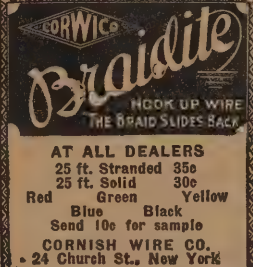 CORWICO
Braidite
HOOK UP WIRE
THE BRAID SLIDES BACK
AT ALL DEALERS
25 ft. Stranded 35c
25 ft. Solid 30c
Red Green Yellow
Blue Black
Send 10c for sample
CORNISH WIRE CO.
24 Church St., New York